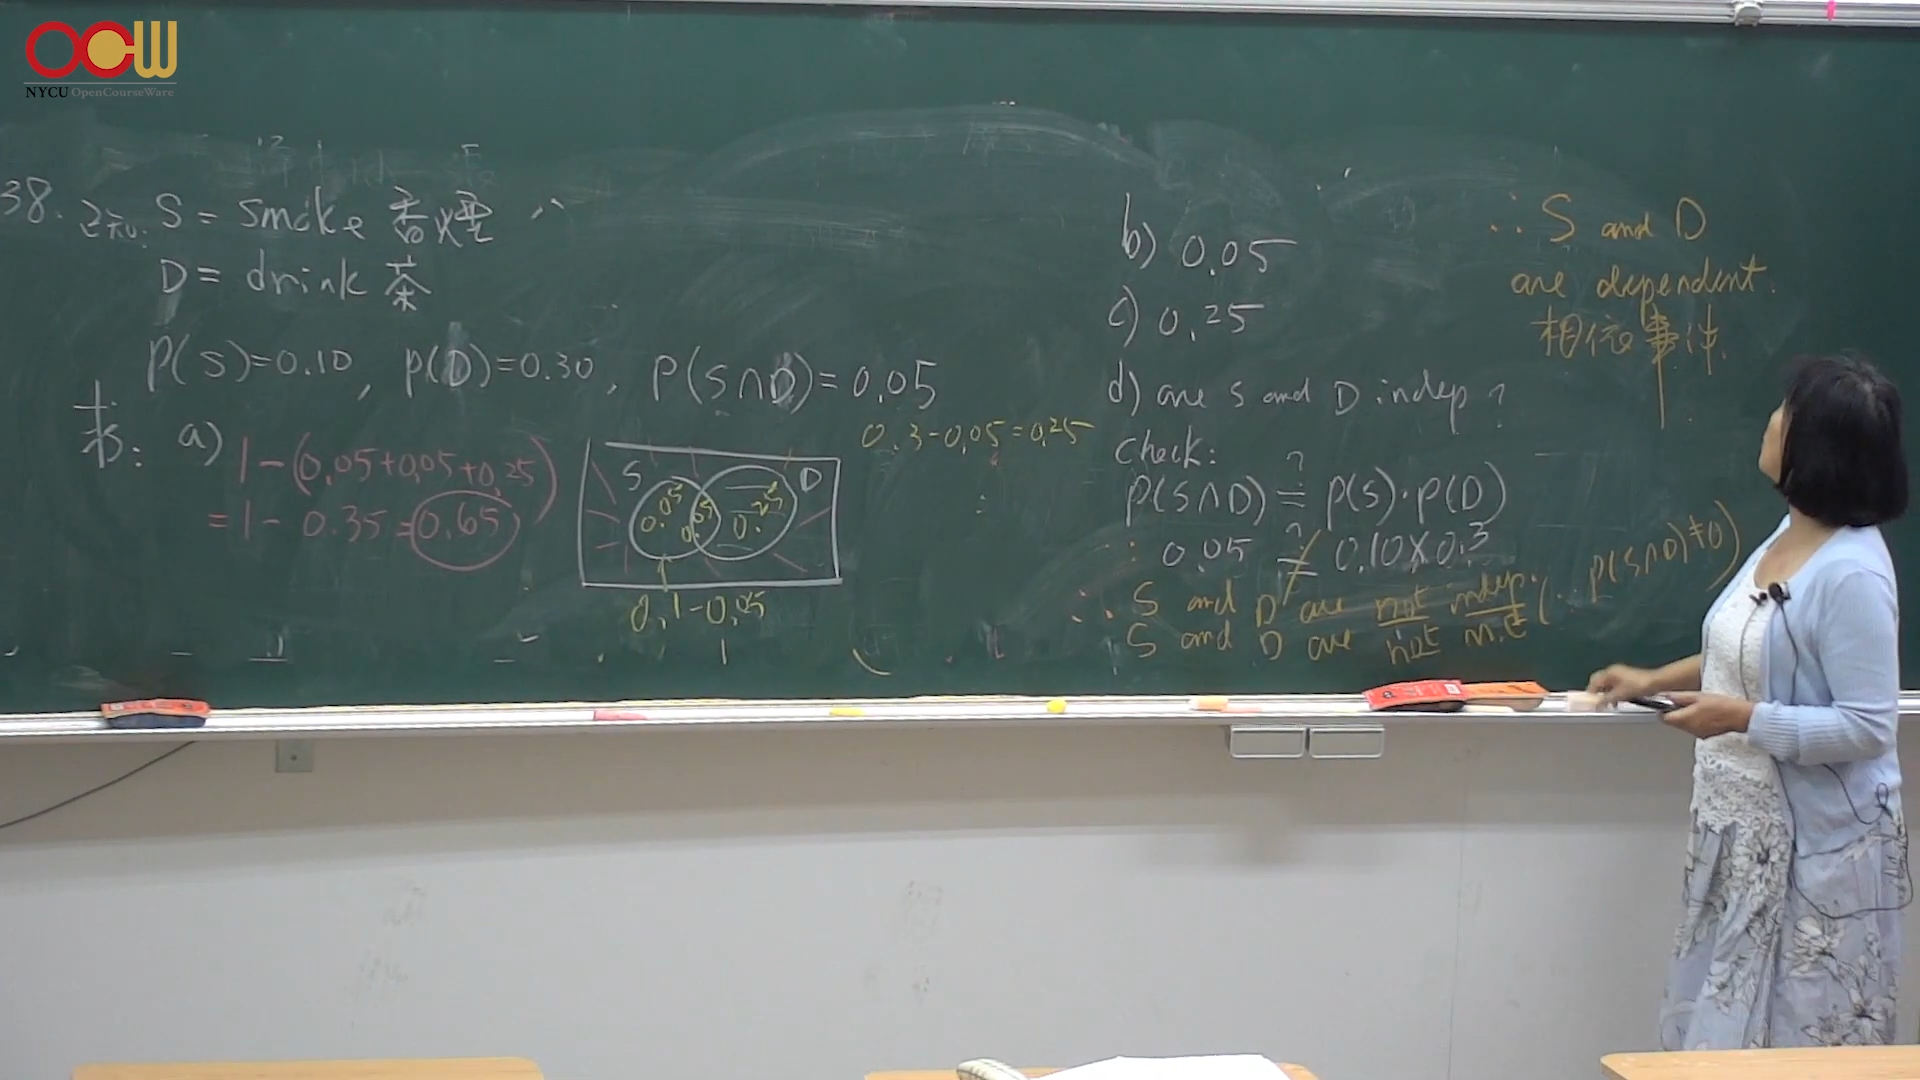 OCW
NYCU OpenCourseWare
38. 已知: S = smoke 香煙
D = drink 茶
P(S)=0.10, P(D)=0.30, P(S∩D)=0.05
求: a)
1-(0.05+0.05+0.25)
=1-0.35=0.65
S D
0.05 0.05 0.25
0.1-0.05
0.3-0.05=0.25
b) 0.05
c) 0.25
d) are S and D indep ?
check:
P(S∩D) ≟ P(S)·P(D)
0.05 ≠ 0.10×0.3
?
∴ S and D are not indep.
S and D are not m.e (∵ P(S∩D)≠0)
∴ S and D
are dependent.
相依事件.